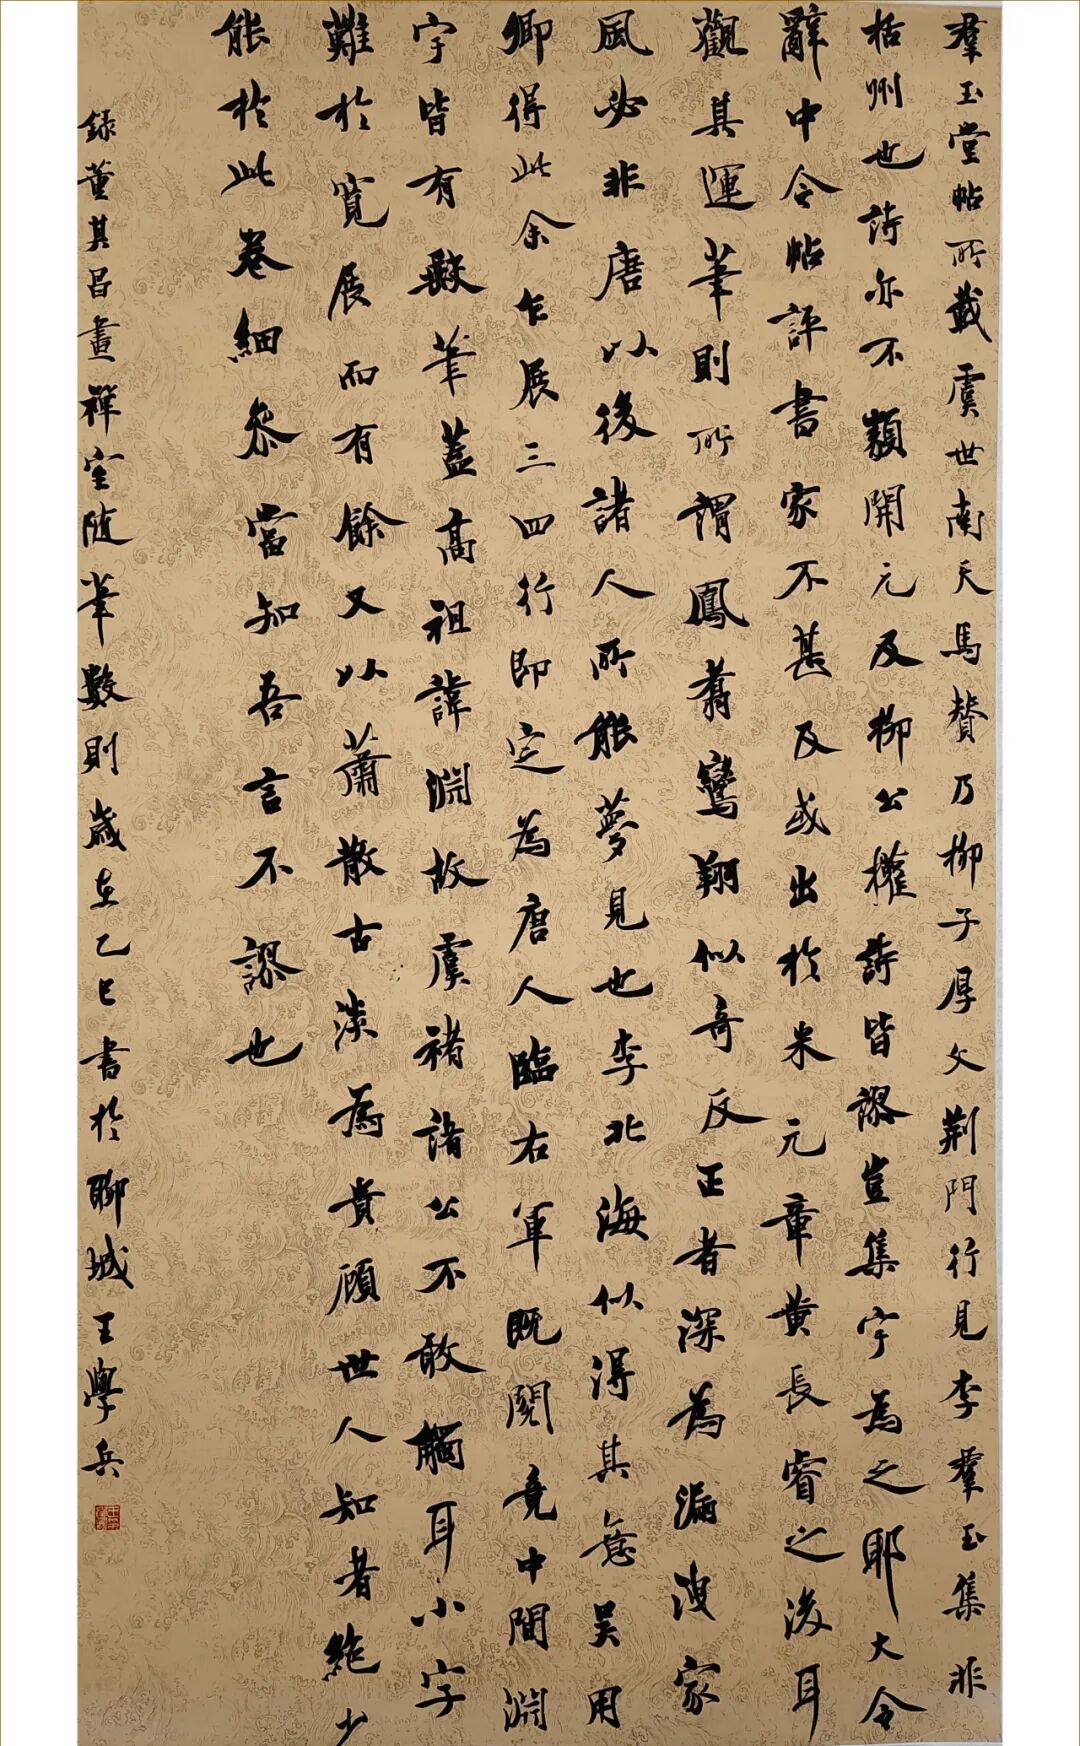 羣玉堂帖所載虞世南天馬賛乃柳子厚文荆門行見李羣玉集非
栝州也詩亦不類開元及柳公權詩皆謬豈集字為之耶大令
辭中令帖評書家不甚及或出於米元章黄長睿之後耳
觀其運筆則所謂鳳翥鸞翔似奇反正者深為漏洩家
風必非唐以後諸人所能夢見也李北海似得其意吴用
卿得此余乍展三四行即定為唐人臨右軍既閱竟中間淵
字皆有缺筆蓋高祖諱淵故虞褚諸公不敢觸耳小字
難於寬展而有餘又以蕭散古淡為貴顧世人知者絶少
能於此卷細叅當知吾言不謬也
録董其昌畫禅室随筆數則歲在乙巳書於聊城王學兵